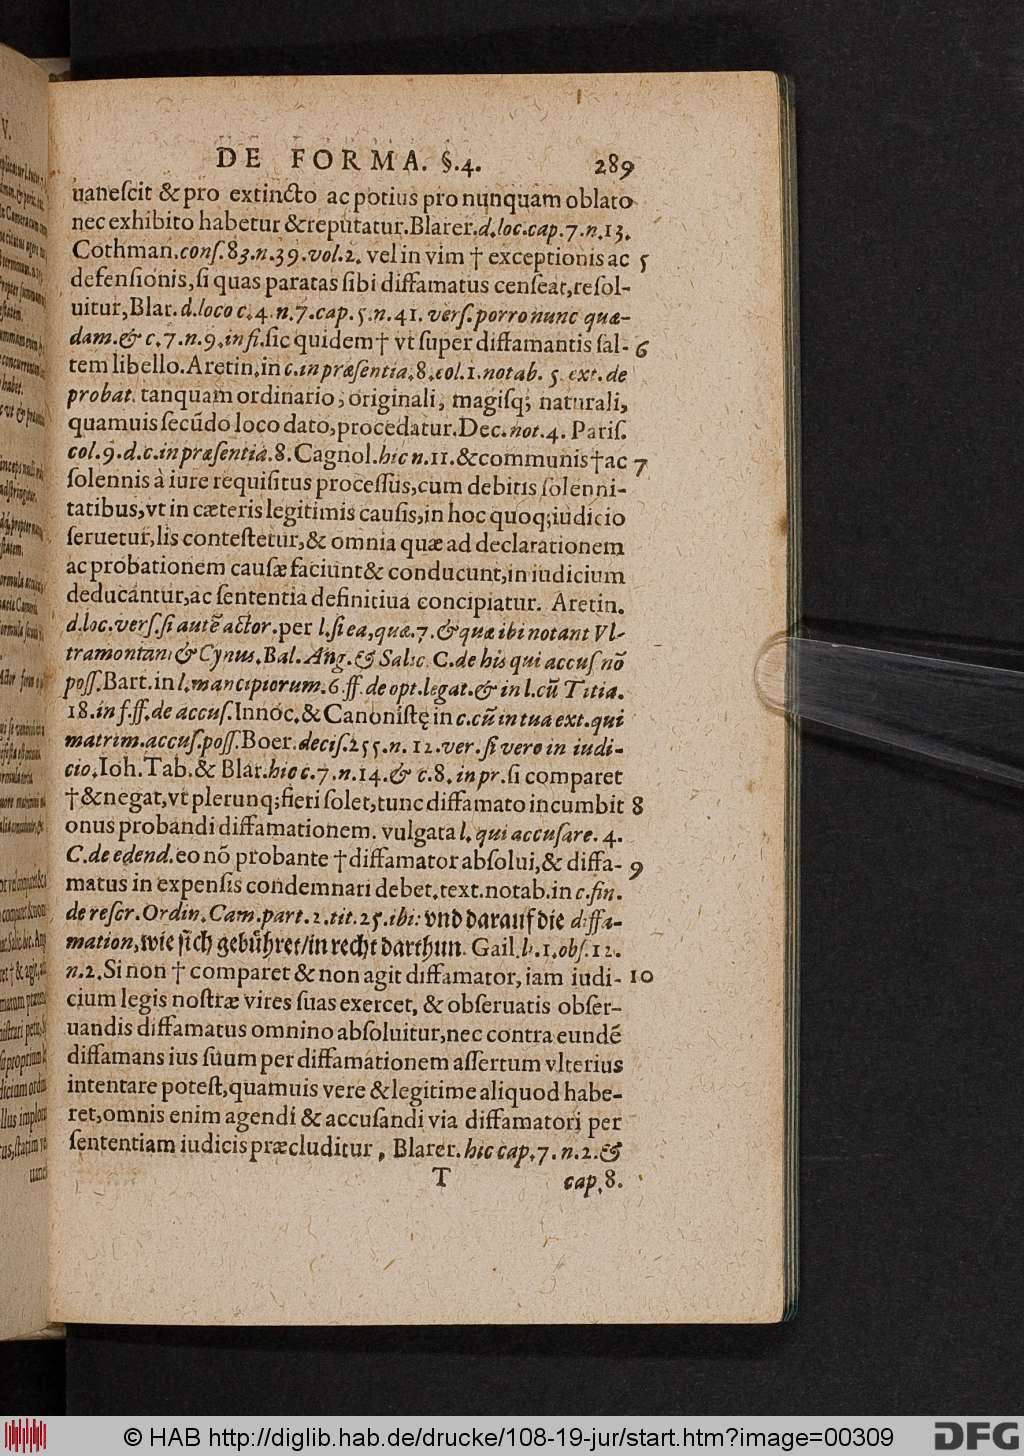 DE FORMA. §.4. 289
uaneſcit & pro extincto ac potius pro nunquam oblato
nec exhibito habetur & reputatur. Blarer. d. loc. cap. 7. n. 13.
Cothman. conſ. 83. n. 39. vol. 2. vel in vim † exceptionis ac 5
defenſionis, ſi quas paratas ſibi diffamatus cenſeat, reſol-
uitur, Blar. d. loco c. 4. n. 7. cap. 5. n. 41. verſ. porro nunc quæ-
dam. & c. 7. n. 9. in fi. ſic quidem † vt ſuper diffamantis ſal- 6
tem libello. Aretin. in c. in præſentia. 8. col. 1. notab. 5. ext. de
probat. tanquam ordinario, originali, magiſq; naturali,
quamuis ſecūdo loco dato, procedatur. Dec. not. 4. Pariſ.
col. 9. d. c. in præſentia. 8. Cagnol. hic n. 11. & communis † ac 7
ſolennis à iure requiſitus proceſſus, cum debitis ſolenni-
tatibus, vt in cæteris legitimis cauſis, in hoc quoq; iudicio
ſeruetur, lis conteſtetur, & omnia quæ ad declarationem
ac probationem cauſæ faciunt & conducunt, in iudicium
deducantur, ac ſententia definitiua concipiatur. Aretin.
d. loc. verſ. ſi autē actor. per l. ſi ea, quæ. 7. & quæ ibi notant Vl-
tramontani & Cynus. Bal. Ang. & Salic. C. de his qui accuſ nō
poſſ. Bart. in l. mancipiorum. 6. ff. de opt. legat. & in l. cū Titia.
18. in f. ff. de accuſ. Innoc. & Canoniſtę in c. cū in tua ext. qui
matrim. accuſ. poſſ. Boer. deciſ. 255. n. 12. ver. ſi vero in iudi-
cio. Ioh. Tab. & Blar. hic c. 7. n. 14. & c. 8. in pr. ſi comparet
† & negat, vt plerunq; fieri ſolet, tunc diffamato incumbit 8
onus probandi diffamationem. vulgata l. qui accuſare. 4.
C. de edend. eo nō probante † diffamator abſolui, & diffa- 9
matus in expenſis condemnari debet. text. notab. in c. fin.
de reſcr. Ordin. Cam. part. 2. tit. 25. ibi: vnd darauf die diffa-
mation, wie ſich gebühret/ in recht darthun. Gail. l. 1. obſ. 12.
n. 2. Si non † comparet & non agit diffamator, iam iudi- 10
cium legis noſtræ vires ſuas exercet, & obſeruatis obſer-
uandis diffamatus omnino abſoluitur, nec contra eundē
diffamans ius ſuum per diffamationem aſſertum vlterius
intentare poteſt, quamuis vere & legitime aliquod habe-
ret, omnis enim agendi & accuſandi via diffamatori per
ſententiam iudicis præcluditur, Blarer. hic cap. 7. n. 2. &
T cap. 8.
© HAB http://diglib.hab.de/drucke/108-19-jur/start.htm?image=00309
DFG